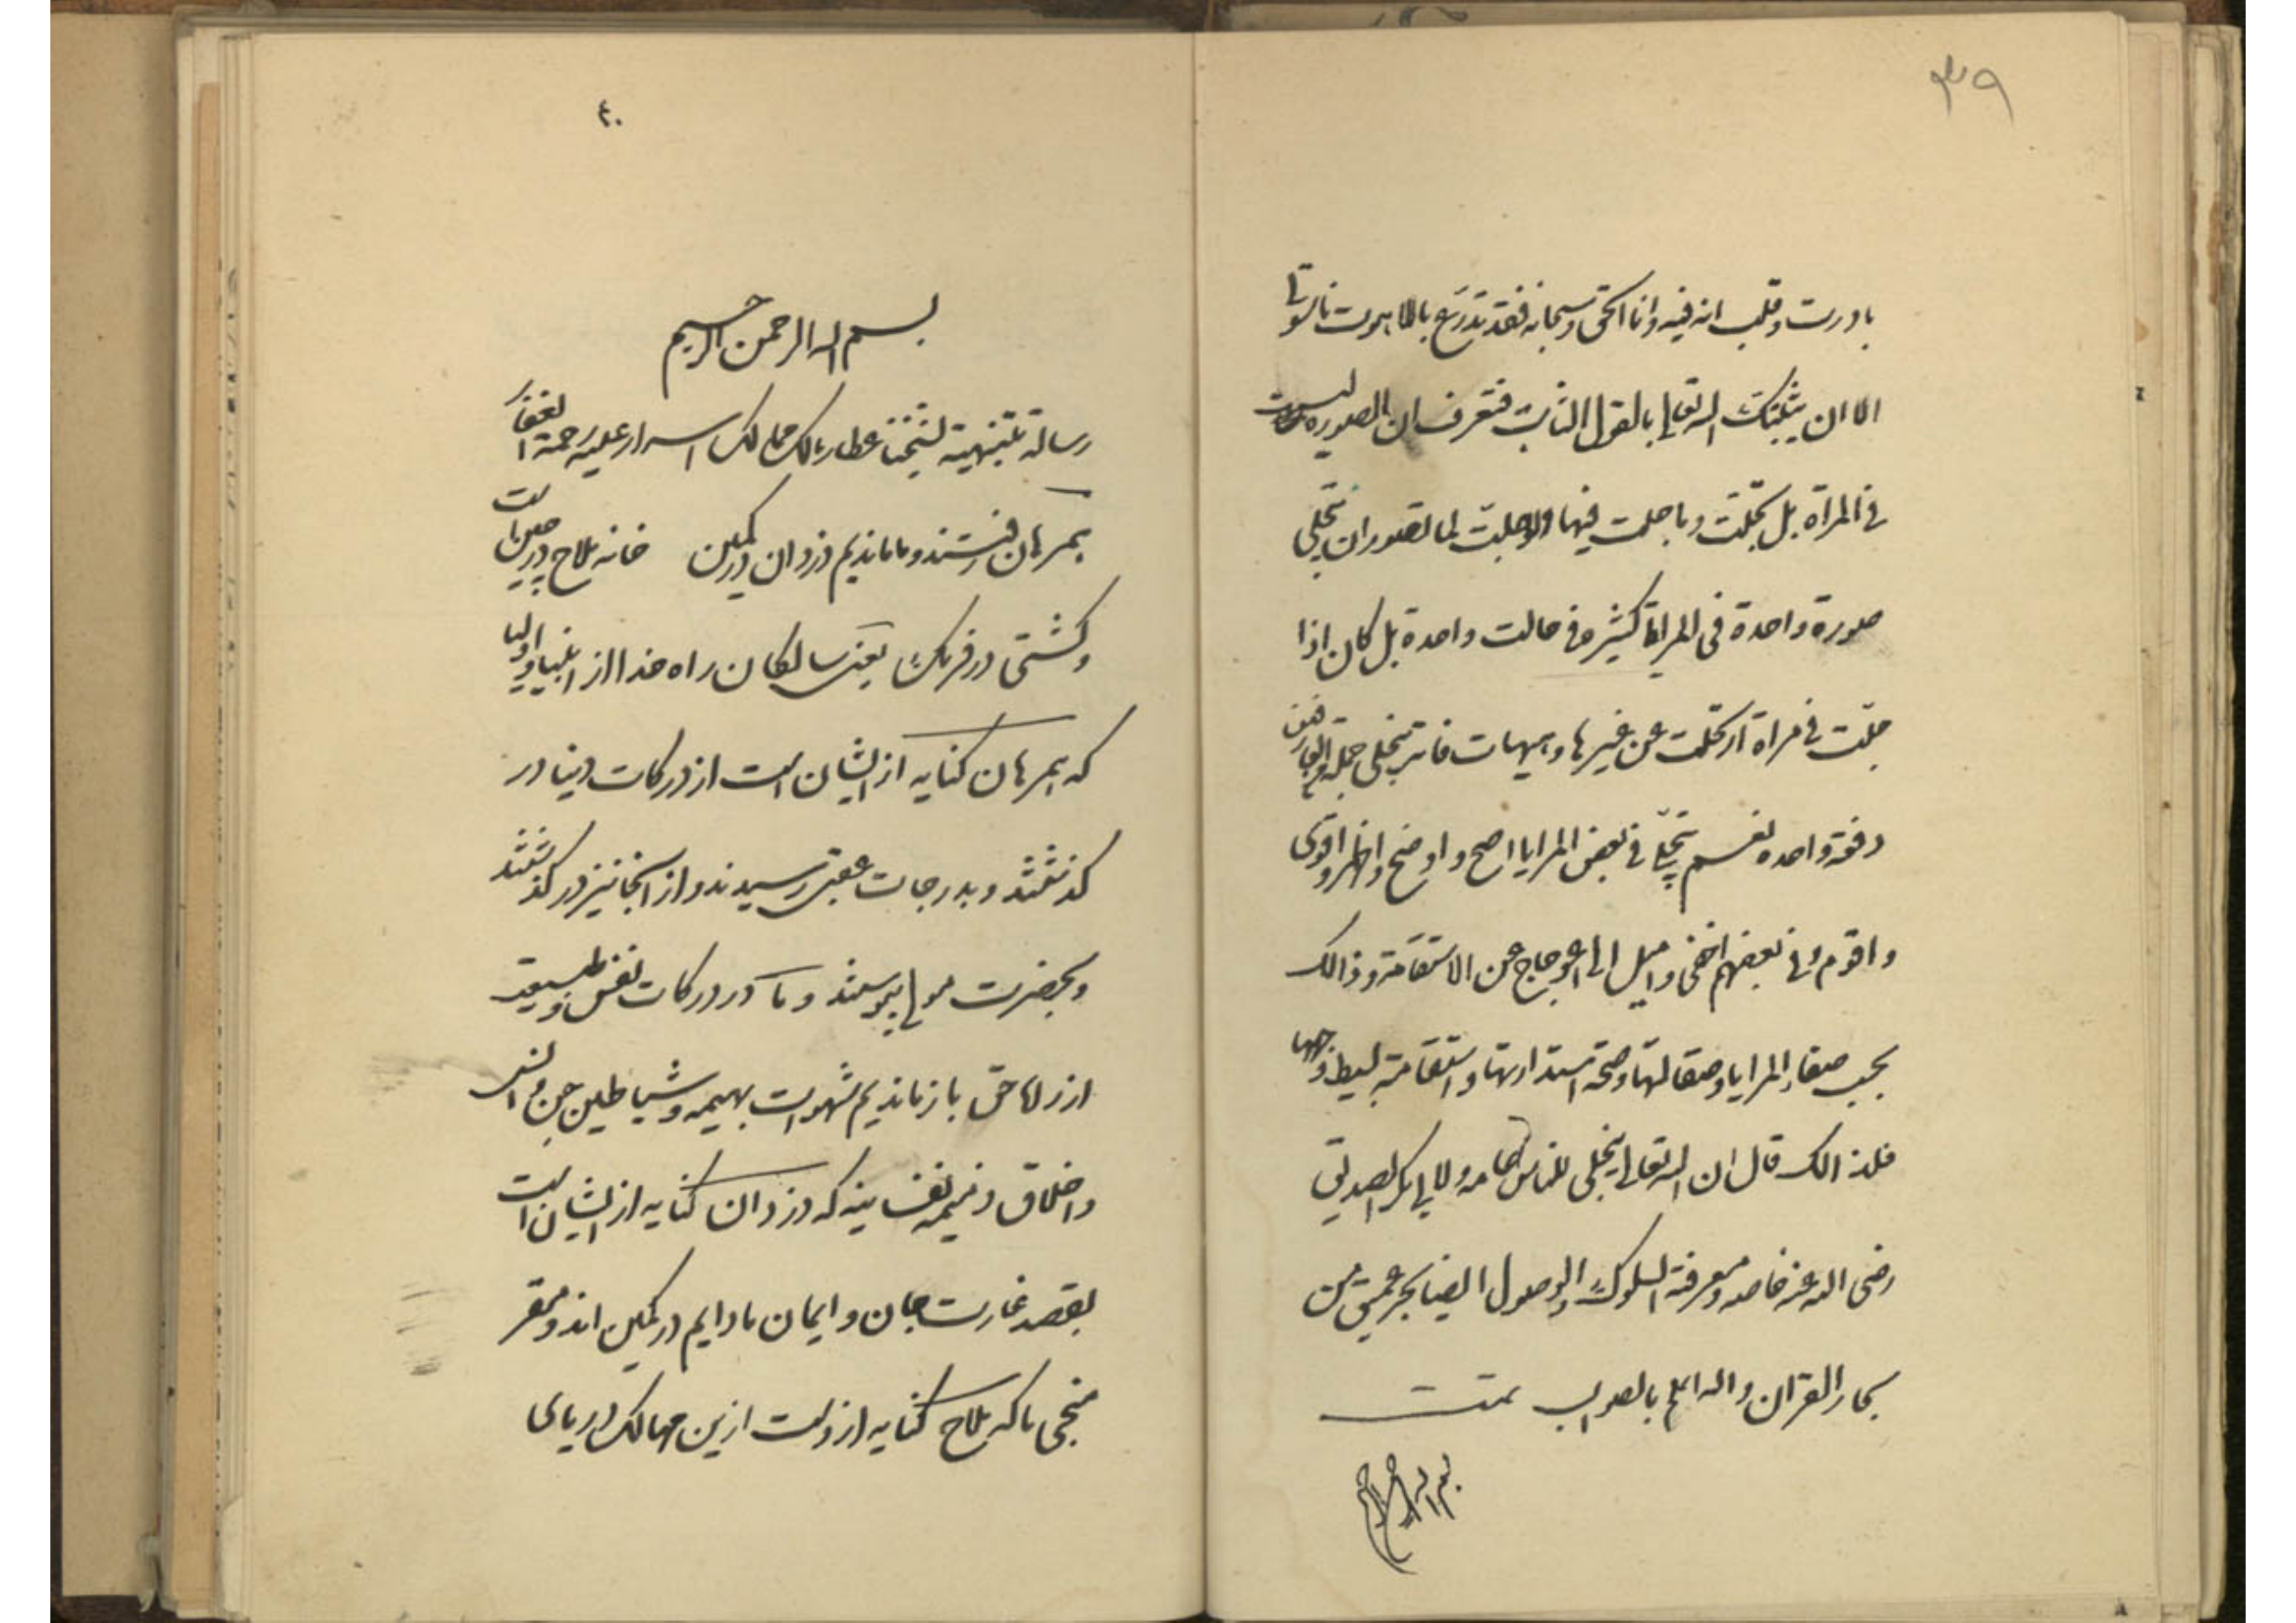 ۳۹
بادرت و قلت انه فیه وانا الحق و سبحانه فقد تدرّع باللاهوت ناسوتی
الا ان یثبتک الله تعالی بالقول الثابت فتعرف ان الصوره لیست
فی المرآة بل تجلّت و ما حلت فیها ولو حلّت لما تصور ان تتجلی
صورة واحدة فی المرایا کثیره فی حالت واحدة بل کان اذا
حلّت فی مراة ارتحلت عن غیرها و هیهات فانه یتجلی لجملة العارفین
دفعة واحده نعم یتجلّی فی بعض المرایا اصح و اوضح و اظهر و اقوی
و اقوم و فی بعضهم اخفی و امیل الی اعوجاج عن الاستقامة و ذالک
بحسب صفاء المرایا و صقالتها و صحة استدارتها و استقامة بسیط وجهها
فلذالک قال ان الله تعالی یتجلی للناس عامه و لابی بکر الصدیق
رضی الله عنه خاصه و معرفة السلوک والوصول ایضا بحر عمیق من
بحار القرآن والله اعلم بالصواب تمت
بسم الله الرحمن الرحیم
۴۰
بسم الله الرحمن الرحیم
رسالة تنبیهیة لشیخنا عطار مالک ممالک اسرار علیه رحمة الغفار
همرهان رفتند و ما ماندیم دزدان در کمین خانه ملاح در چین است
و کشتی در فرنگ یعنی سالکان راه خدا از انبیا و اولیا
که همرهان کنایه از ایشان است از درکات دنیا در
گذشتند و بدرجات عقبی رسیدند و از آنجا نیز درگذشتند
و بحضرت مولی پیوستند و ما در درکات نفس و طبیعت
از راه حق باز ماندیم شهوات بهیمه و شیاطین جن و انس
و اخلاق ذمیمه نفسانیه که دزدان کنایه از ایشان است
بقصد غارت جان و ایمان ما دایم در کمین اند و مقر
منجی ما که ملاح کنایه از وست ازین مهالک دریای